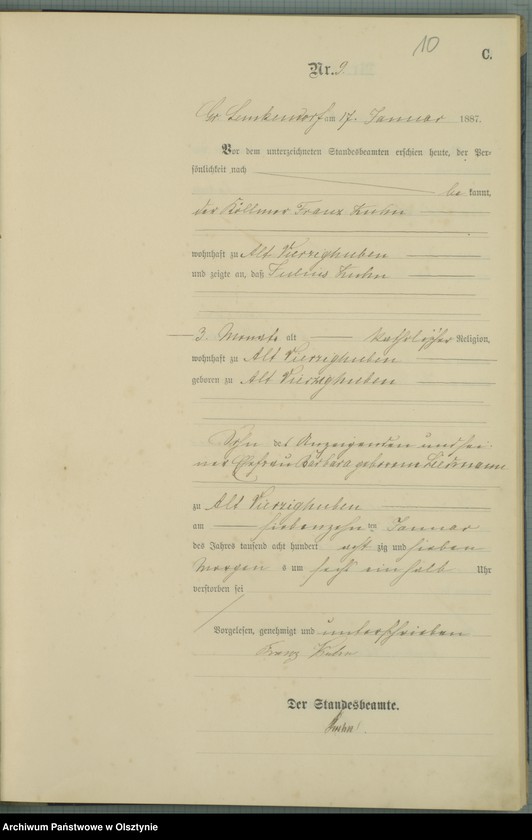 10
C.
Nr. 9.
Gr. Lemkendorf am 17. Januar 1887.
Vor dem unterzeichneten Standesbeamten erschien heute, der Per-
sönlichkeit nach
be kannt,
der Köllmer Franz Kuhn
wohnhaft zu Alt Vierzighuben
und zeigte an, daß Julius Kuhn
3 Monate alt katholischer Religion,
wohnhaft zu Alt Vierzighuben
geboren zu Alt Vierzighuben
Sohn des Anzeigenden und sei
ner Ehefrau Barbara geborenen
zu Alt Vierzighuben
am siebenzehn ten Januar
des Jahres tausend acht hundert acht zig und sieben
Morgen s um sechs einhalb Uhr
verstorben sei
Vorgelesen, genehmigt und unterschrieben
Franz Kuhn
Der Standesbeamte.
Archiwum Państwowe w Olsztynie